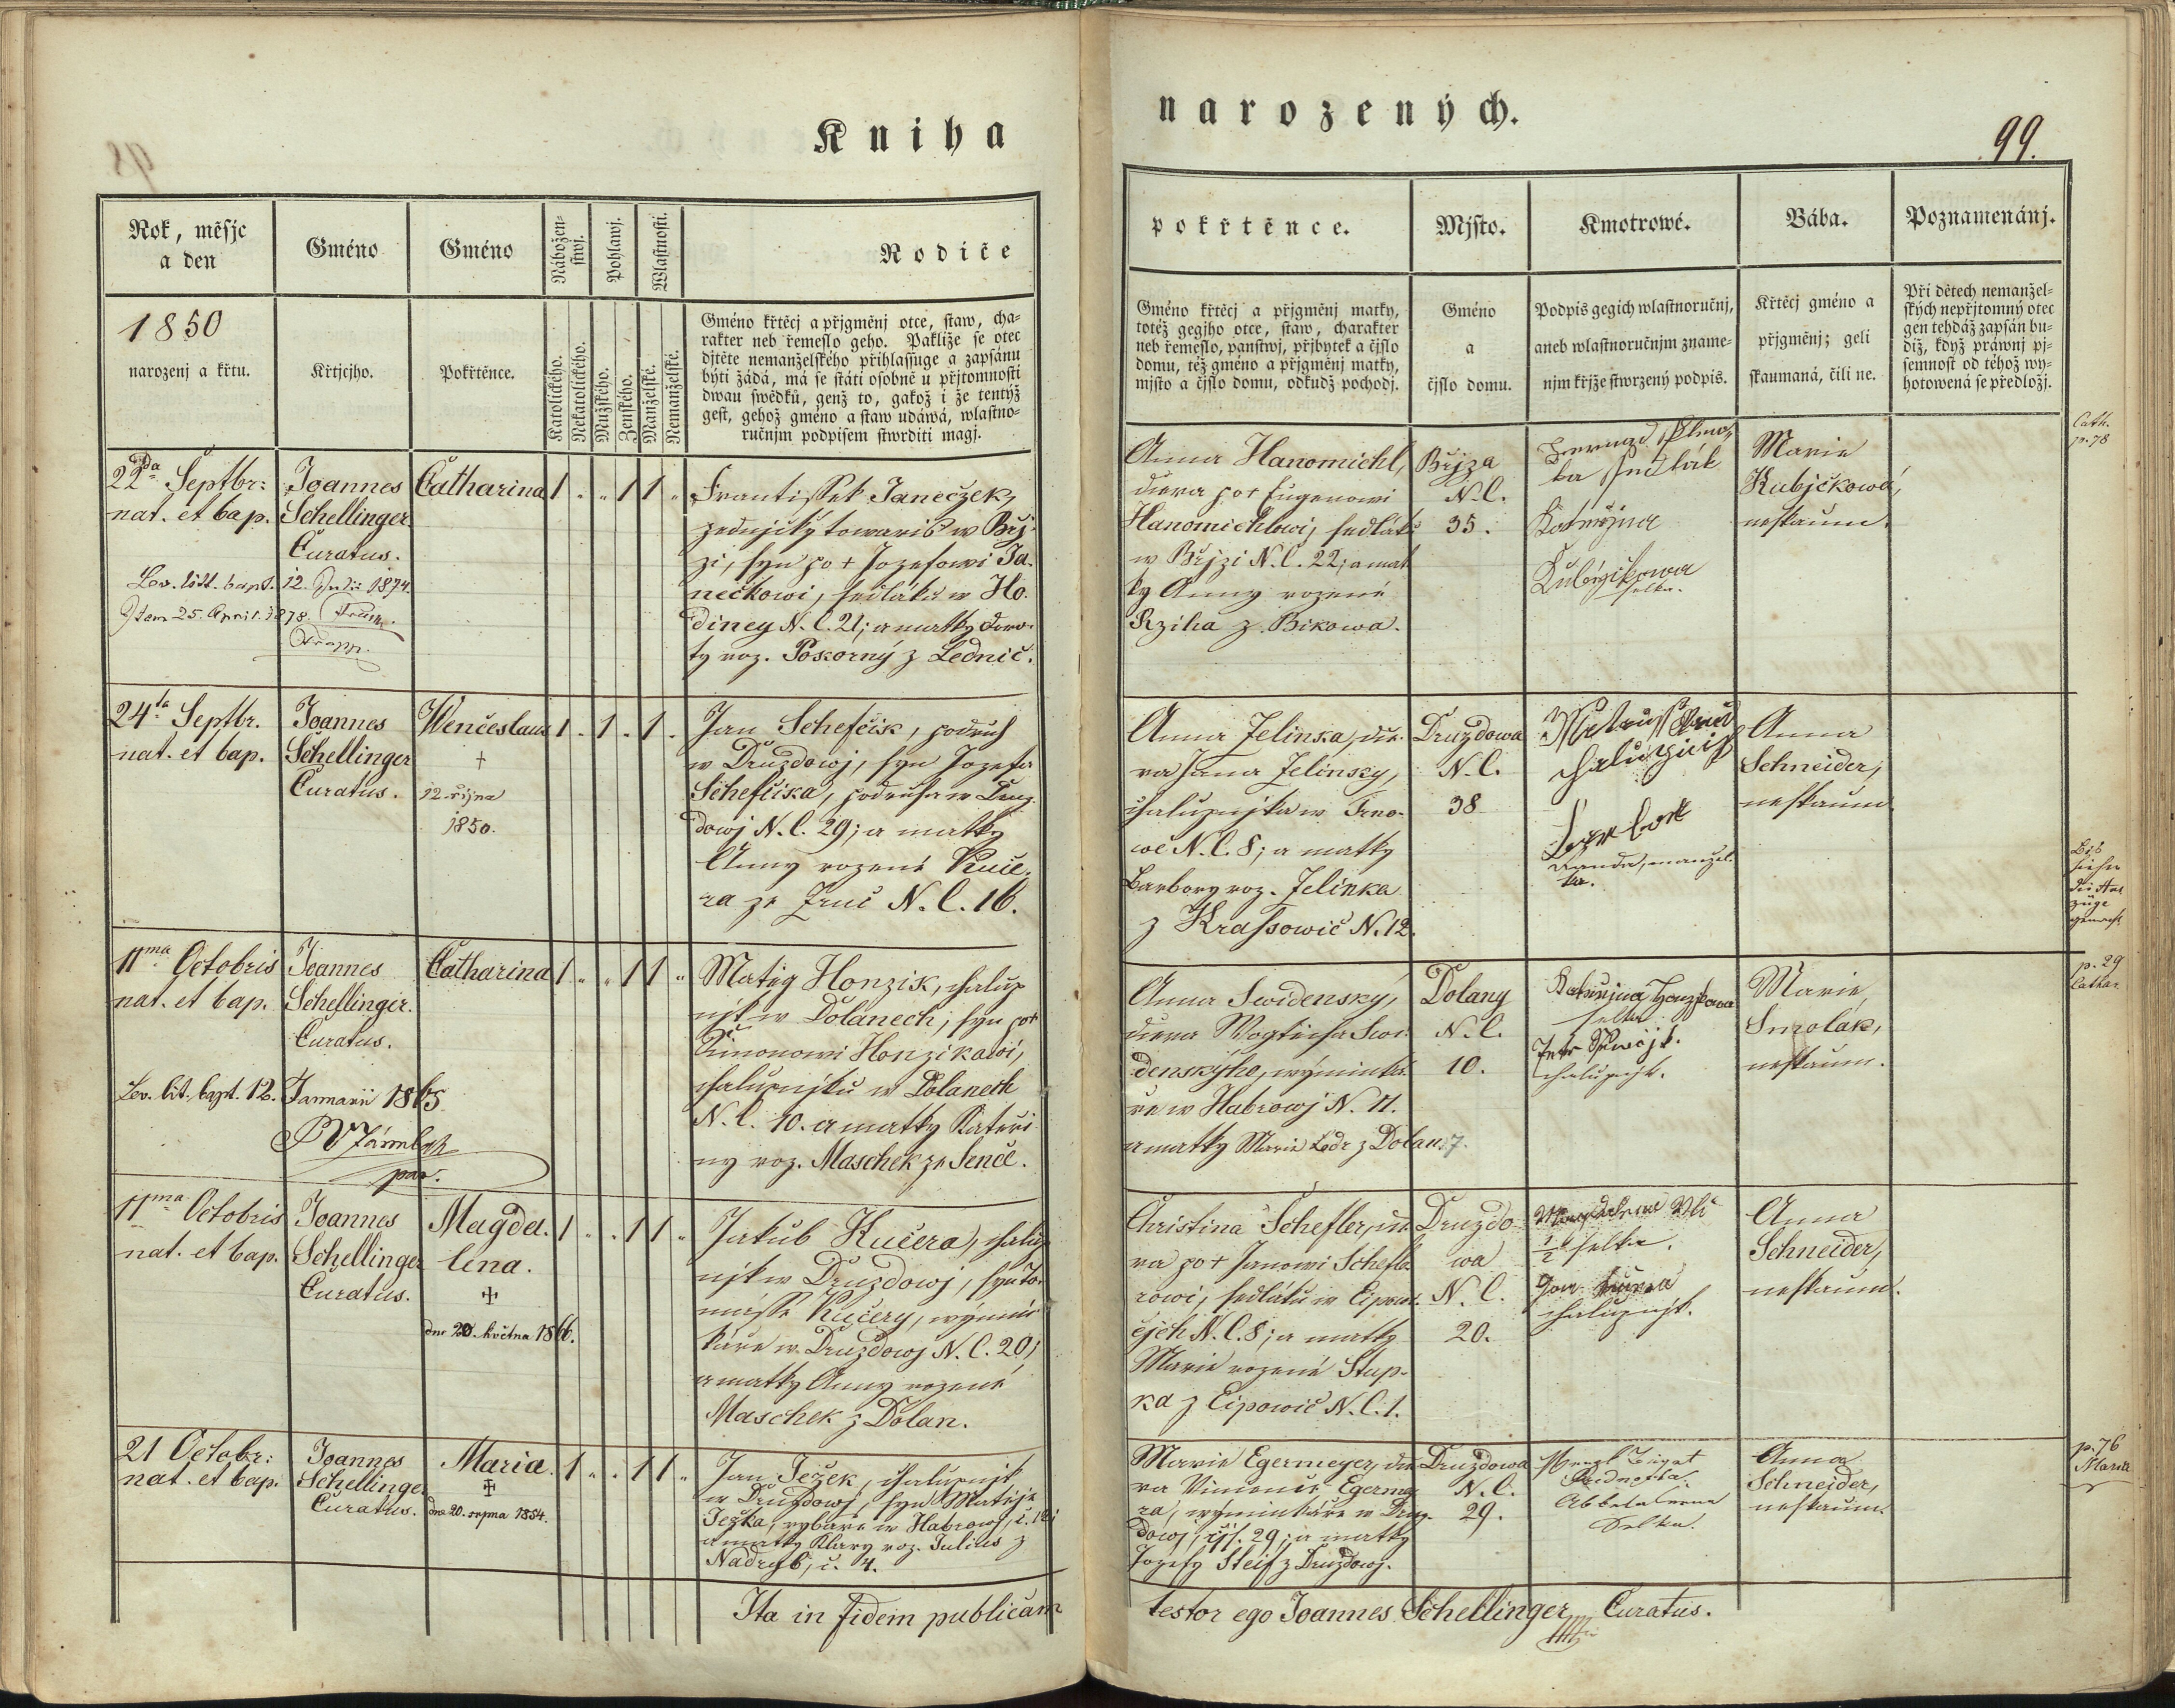 Kniha
narozených.
99.
Rok, měsjc
a den
1850
narozenj a křtu.
Gméno
Křtjcjho.
Gméno
Pokřtěnce.
Nábožen-
stwj.
Katolického.
Nekatolického.
Pohlawj.
Mužského.
Ženského.
Wlastnosti.
Manželské.
Nemanželské.
Rodiče
Gméno křtěcj a přjgměnj otce, staw, cha-
rakter neb řemeslo geho. Pakliže se otec
djtěte nemanželského přihlassuge a zapsánu
býti žádá, má se státi osobně u přjtomnosti
dwau swědků, genž to, gakož i že tentýž
gest, gehož gméno a staw udáwá, wlastno-
ručnjm podpisem stwrditi magj.
pokřtěnce.
Gméno křtěcj a přjgměnj matky,
totéž gegjho otce, staw, charakter
neb řemeslo, panstwj, přjbytek a čjslo
domu, též gméno a přjgměnj matky,
mjsto a čjslo domu, odkudž pochodj.
Mjsto.
Gméno
a
čjslo domu.
Kmotrowé.
Podpis gegich wlastnoručnj,
aneb wlastnoručnjm zname-
njm křjže stwrzený podpis.
Bába.
Křtěcj gméno a
přjgměnj; geli
skaumaná, čili ne.
Poznamenánj.
Při dětech nemanžel-
ských nepřjtomný otec
gen tehdáž zapsán bu-
diž, když práwnj pj-
semnost od téhož wy-
hotowená se předložj.
22da Septbr:
nat. et bap.
Joannes
Schellinger
Curatus.
Lev. litt. bapt. 12. Julii 1874.
Item 25. April. 1878.
Catharina
1 " " 1 1 "
Frantissek Janeczek,
zednjcký towariš w Břj-
zi, syn po + Jozefowi Ja-
nečkowi, sedláku w Ho-
diney N. C. 21; a matky Doro-
ty roz. Pokorný z Lednič.
Anna Hanomichl,
dcera po + Eugenowi
Hanomichlowi, sedláku
w Břjzi N. C. 22; a mat
ky Anny rozené
Rziha z Bikowa.
Břjza
N. C.
35.
Kateřina
Kubičkowa
selka.
Marie
Kubjčkowá,
neskaum.
Cath.
p. 78
24ta Septbr.
nat. et bap.
Joannes
Schellinger
Curatus.
Wenčeslaus
+
12 října
1850.
1 " 1 " 1 "
Jan Schefčik, podruh
w Druzdowj, syn Jozefa
Schefčika, podruha w Druz-
dowj N. C. 29; a matky
Anny rozené Kuče-
ra ze Zruč N. C. 16.
Anna Jelinka, dce-
ra Jana Jelinsky,
chalupnjka w Trno-
wé N. C. 8; a matky
Barbory roz. Jelinka
z Krassowic N. 12.
Druzdowa
N. C.
38
manžel-
ka.
Anna
Schneider,
neskaum.
11ma Octobris
nat. et bap.
Joannes
Schellinger.
Curatus.
Lev. lit. bapt. 12. Januarii 1865
par.
Catharina
1 " " 1 1 "
Matěg Honzik, chalup
njk w Dolanech, syn po +
Šimonowi Honzikowi,
chalupnjku w Dolanech
N. C. 10. a matky Kateři-
ny roz. Maschek ze Senče.
Anna Swidenský,
dcera Wogtěcha Swi-
denskýho, wýminká-
ře w Habrowj N. 11.
a matky Marie Lodr z Dolan. 7.
Dolany
N. C.
10.
chalupnjk.
Marie
Smolák,
neskaum.
p. 29
Cathar.
11ma Octobris
nat. et bap.
Joannes
Schellinger
Curatus.
Magda-
lena.
+
dne 20. května 1866.
1 " " 1 1 "
Jakub Kučera, chalup
njk w Druzdowj, syn To-
másse Kučery, wýmin-
káře w Druzdowj N. C. 20;
a matky Anny rozené
Maschek z Dolan.
Christina Schefler, dce-
ra po + Janowi Schefle-
rowi, sedláku w Eipowi-
cjch N. C. 8; a matky
Marie rozené Stup-
ka z Eipowic N. C. 1.
Druzdo-
wa
N. C.
20.
½ selka.
Jan Kučera
chalupnjk.
Anna
Schneider,
neskaum.
21 Octobr:
nat. et bap.
Joannes
Schellinger
Curatus.
Maria.
+
dne 20. srpna 1854.
1 " " 1 1 "
Jan Težek, chalupnjk
w Druzdowj, syn Matěje
Težka, rybáře w Habrowj, č. 12;
a matky Klary roz. Julius z
Nadryb, č. 4.
Marie Egermeyer, dce-
ra Vincence Egermey-
ra, wýminkáře w Druz-
dowj, čjs. 29; a matky
Jozefy Steif z Druzdowj.
Druzdowa
N. C.
29.
Selka.
Anna
Schneider,
neskaum.
p. 76
Maria
Ita in fidem publicam
testor ego Joannes Schellinger Curatus.